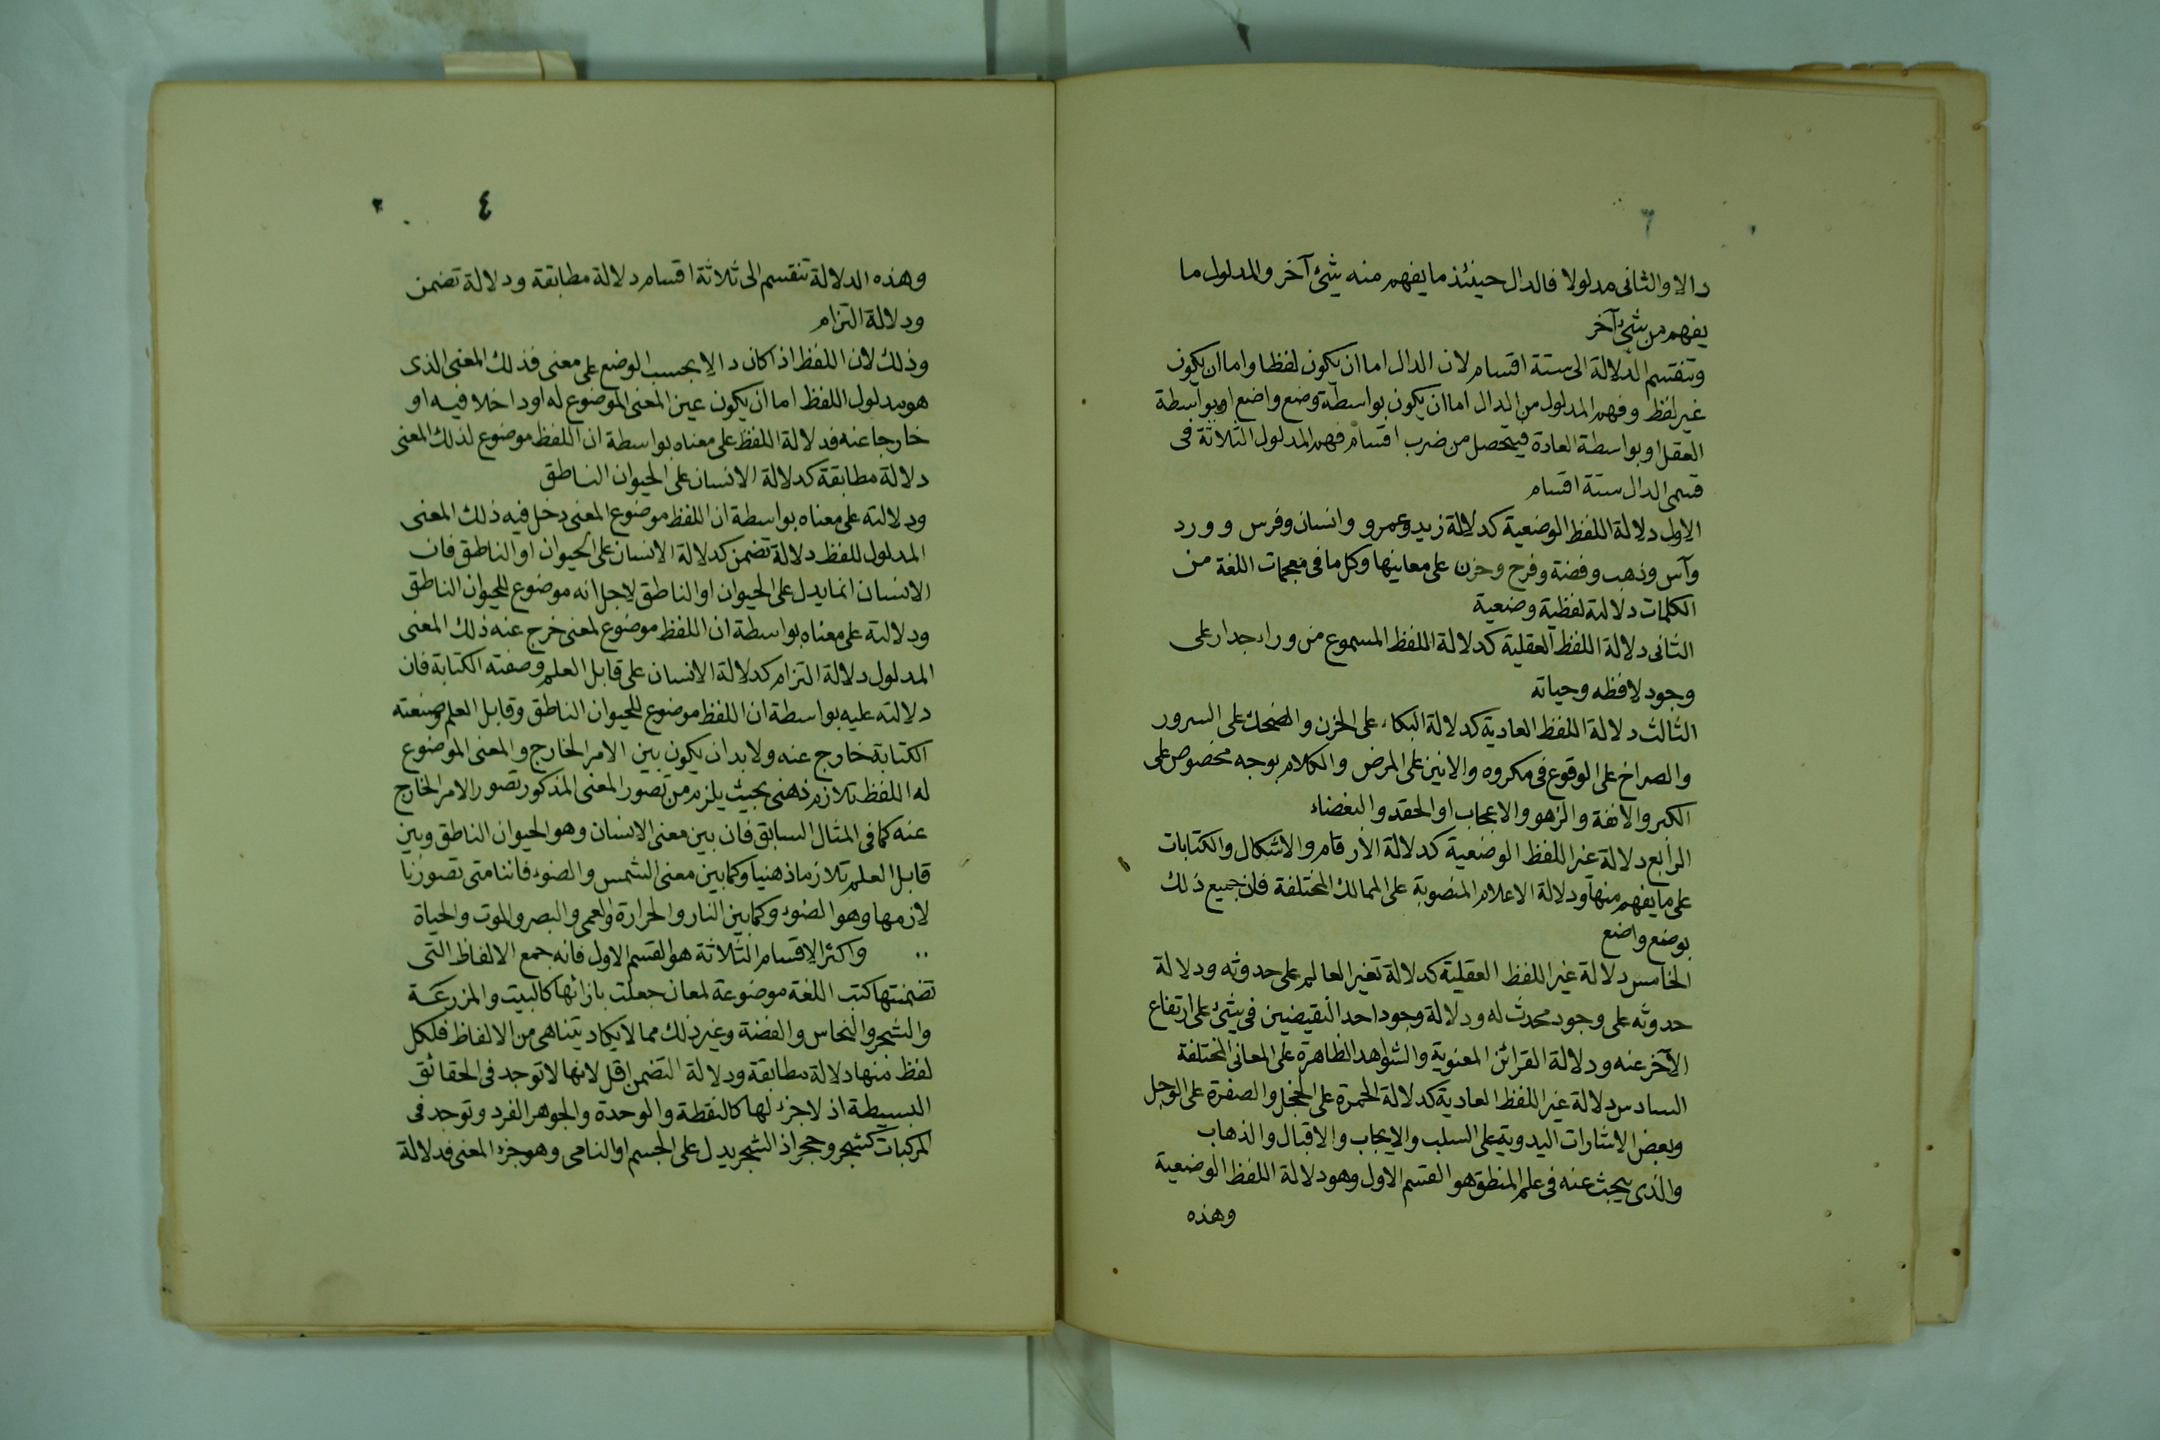 ٣
دالا والثانى مدلولا فالدال حينئذ ما يفهم منه شئ آخر والمدلول ما
يفهم من شئ آخر
وتنقسم الدلالة الى ستة اقسام لان الدال اما ان يكون لفظا واما ان يكون
غير لفظ وفهم المدلول من الدال اما ان يكون بواسطة وضع واضع او بواسطة
العقل او بواسطة العادة فيتحصل من ضرب اقسام فهم المدلول الثلاثة فى
قسمى الدال ستة اقسام
الاول دلالة اللفظ الوضعية كدلالة زيد وعمرو وانسان وفرس وورد
وآس وذهب وفضة وفرح وحزن على معانيها وكل ما فى معجمات اللغة من
الكلمات دلالته لفظية وضعية
الثانى دلالة اللفظ العقلية كدلالة اللفظ المسموع من وراء جدار على
وجود لافظه وحياته
الثالث دلالة اللفظ العادية كدلالة البكاء على الحزن والضحك على السرور
والصراخ على الوقوع فى مكروه والانين على المرض والكلام بوجه مخصوص على
الكبر والانفة والزهو والاعجاب او الحقد والبغضاء
الرابع دلالة غير اللفظ الوضعية كدلالة الارقام والاشكال والكتابات
على ما يفهم منها ودلالة الاعلام المنصوبة على الممالك المختلفة فان جميع ذلك
بوضع واضع
الخامس دلالة غير اللفظ العقلية كدلالة تغير العالم على حدوثه ودلالة
حدوثه على وجود محدث له ودلالة وجود احد النقيضين فى شئ على ارتفاع
الآخر عنه ودلالة القرائن المعنوية والشواهد الظاهرة على المعانى المختلفة
السادس دلالة غير اللفظ العادية كدلالة الحمرة على الخجل والصفرة على الوجل
وبعض الاشارات اليدوية على السلب والايجاب والاقبال والذهاب
والذى يبحث عنه فى علم المنطق هو القسم الاول وهو دلالة اللفظ الوضعية
وهذه
٤
وهذه الدلالة تنقسم الى ثلاثة اقسام دلالة مطابقة ودلالة تضمن
ودلالة التزام
وذلك لان اللفظ اذا كان دالا بحسب الوضع على معنى فذلك المعنى الذى
هو مدلول اللفظ اما ان يكون عين المعنى الموضوع له او داخلا فيه او
خارجا عنه فدلالة اللفظ على معناه بواسطة ان اللفظ موضوع لذلك المعنى
دلالة مطابقة كدلالة الانسان على الحيوان الناطق
ودلالته على معناه بواسطة ان اللفظ موضوع المعنى دخل فيه ذلك المعنى
المدلول للفظ دلالة تضمن كدلالة الانسان على الحيوان او الناطق فان
الانسان انما يدل على الحيوان او الناطق لاجل انه موضوع للحيوان الناطق
ودلالته على معناه بواسطة ان اللفظ موضوع لمعنى خرج عنه ذلك المعنى
المدلول دلالة التزام كدلالة الانسان على قابل العلم وصفته الكتابة فان
دلالته عليه بواسطة ان اللفظ موضوع للحيوان الناطق وقابل العلم وصنعته
الكتابة خارج عنه ولابد ان يكون بين الامر الخارج والمعنى الموضوع
له اللفظ تلازم ذهنى بحيث يلزم من تصور المعنى المذكور تصور الامر الخارج
عنه كما فى المثال السابق فان بين معنى الانسان وهو الحيوان الناطق وبين
قابل العلم تلازما ذهنيا وكما بين معنى الشمس والضوء فاننا متى تصورنا
لازمها وهو الضوء وكما بين النار والحرارة والعمى والبصر والموت والحياة
واكثر الاقسام الثلاثة هو القسم الاول فانه جمع الالفاظ التى
تضمنتها كتب اللغة موضوعة لمعان جعلت بازائها كالبيت والمزرعة
والشجر والنحاس والفضة وغير ذلك مما لا يكاد يتناهى من الالفاظ فلكل
لفظ منها دلالة مطابقة ودلالة التضمن اقل لانها لا توجد فى الحقائق
البسيطة اذ لا جزء لها كالنقطة والوحدة والجوهر الفرد وتوجد فى
المركبات كشجر وحجر اذ الشجر يدل على الجسم او النامى وهو جزء المعنى فدلالة